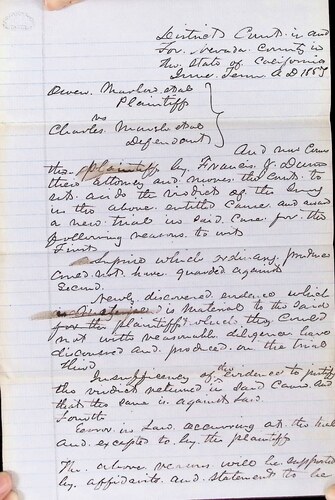 District Court in and
For Nevada County in
the State of California
June Term A D 1857
Owen et al
Plaintiff
vs
Charles Marsh et al
Defendant
And now Come
the plaintiffs by Francis J. Dunn
their attorney and moves the Court to
set aside the verdict of the Jury
in the above entitled Cause and award
a new trial in said Case for the
following reasons to wit
First
Surprise which ordinary prudence
Could not have guarded against
Second
Newly discovered evidence which
is material to the
for the plaintiffs which they Could
not with reasonable diligence have
discovered and produced on the trial
Third
Insufficiency of the Evidence to justify
the verdict returned in said Cause and
that the same is against Law
Fourth
Error in Law occurring at the trial
and excepted to by the plaintiffs
The above reasons will be supported
by affidavits and statement to be